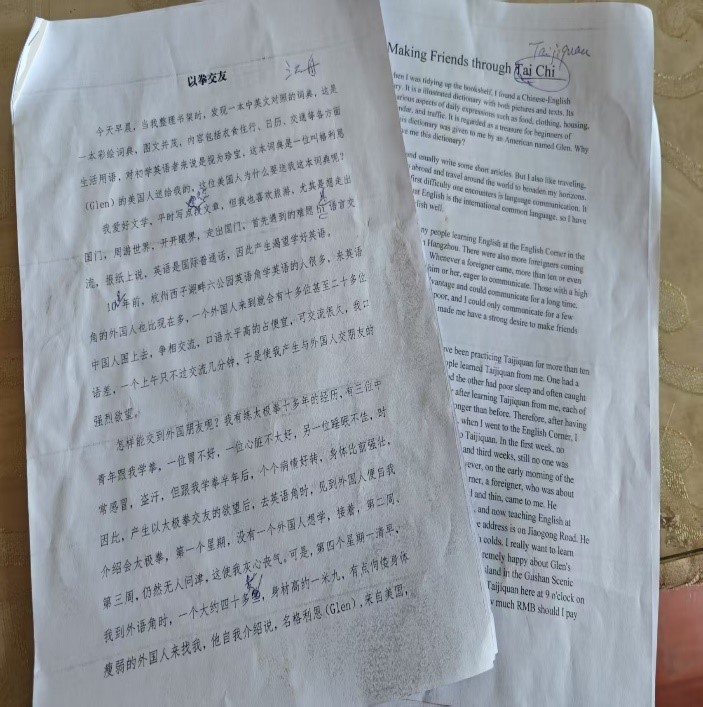 以拳交友 江舟
今天早晨，当我整理书架时，发现一本中英文对照的词典，这是
一本彩绘词典，图文并茂，内容包括衣食住行、日历、交通等各方面
生活用语，对初学英语者来说是视为珍宝，这本词典是一位叫格利恩
(Glen)的美国人送给我的，这位美国人为什么要送我这本词典呢？
我爱好文学，平时写点文章，但我也喜欢旅游，尤其是想走出
国门，周游世界，开开眼界，走出国门，首先遇到的难题语言交
流，报纸上说，英语是国际普通话，因此产生渴望学好英语。
年前，杭州西子湖畔六公园英语角学英语的人很多，来英语
角的外国人也比现在多，一个外国人来到就会有十多位甚至二十多位
中国人围上去，争相交流，口语水平高的占便宜，可交流很久，我口
语差，一个上午只不过交流几分钟，于是使我产生与外国人交朋友的
强烈欲望。
怎样能交到外国朋友呢？我有练太极拳十多年的经历，有三位中
青年跟我学拳，一位胃不好，一位心脏不大好，另一位睡眠不佳，时
常感冒，盗汗，但跟我学拳半年后，个个病情好转，身体比前强壮，
因此，产生以太极拳交友的欲望后，去英语角时，见到外国人便自我
介绍会太极拳，第一个星期，没有一个外国人想学，接着，第二周、
第三周，仍然无人问津，这使我灰心丧气。可是，第四个星期一清早，
我到外语角时，一个大约四十多，身材高约一米九，有点佝偻身体
瘦弱的外国人来找我，他自我介绍说，名格利恩(Glen)，来自美国，
Taijiquan
Making Friends through Tai Chi
hen I was tidying up the bookshelf, I found a Chinese-English
ry. It is a illustrated dictionary with both pictures and texts. Its
arious aspects of daily expressions such as food, clothing, housing,
ndar, and traffic. It is regarded as a treasure for beginners of
is dictionary was given to me by an American named Glen. Why
ve me this dictionary?
and usually write some short articles. But I also like traveling,
abroad and travel around the world to broaden my horizons.
first difficulty one encounters is language communication. It
at English is the international common language, so I have
glish well.
ny people learning English at the English Corner in the
Hangzhou. There were also more foreigners coming
Whenever a foreigner came, more than ten or even
him or her, eager to communicate. Those with a high
vantage and could communicate for a long time.
poor, and I could only communicate for a few
made me have a strong desire to make friends
ve been practicing Taijiquan for more than ten
ple learned Taijiquan from me. One had a
d the other had poor sleep and often caught
after learning Taijiquan from me, each of
onger than before. Therefore, after having
when I went to the English Corner, I
Taijiquan. In the first week, no
and third weeks, still no one was
ever, on the early morning of the
rner, a foreigner, who was about
l and thin, came to me. He
, and now teaching English at
e address is on Jiaogong Road. He
colds. I really want to learn
remely happy about Glen's
sland in the Gushan Scenic
Taijiquan here at 9 o'clock on
w much RMB should I pay